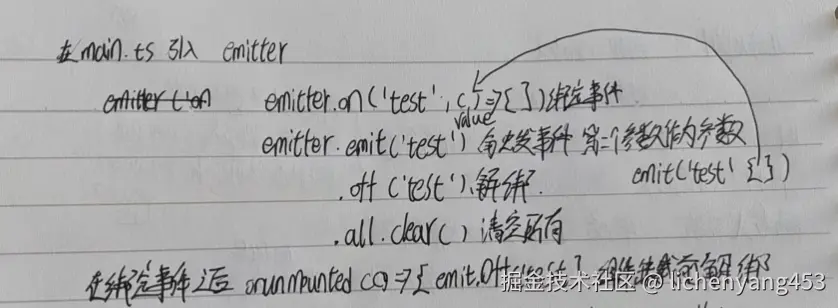 在main.ts 引入 emitter
emitter.on('test', ()=>{ }) 绑定事件
value
emitter.emit('test') 触发事件 第二个参数作为参数
emit('test' {})
.off ('test') 解绑.
.all.clear() 清空所有
在绑定事件之后 onunmounted (()=>{ emit.off 解绑
掘金技术社区 @ lichenyang453